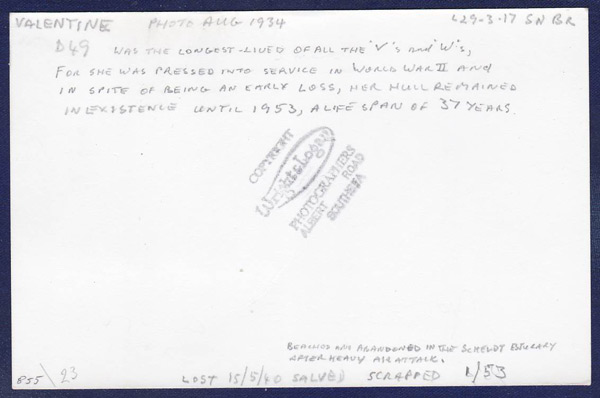 VALENTINE PHOTO AUG 1934 L29-3-17 SN BR
D49 WAS THE LONGEST-LIVED OF ALL THE "V"s and "W"s,
FOR SHE WAS PRESSED INTO SERVICE IN WORLD WAR II AND
IN SPITE OF BEING AN EARLY LOSS, HER HULL REMAINED
IN EXISTENCE UNTIL 1953, A LIFE SPAN OF 37 YEARS.
COPYRIGHT
Wright & Logan
PHOTOGRAPHERS
ALBERT ROAD
SOUTHSEA
BEACHED AND ABANDONED IN THE SCHELDT ESTUARY
AFTER HEAVY AIR ATTACK.
855 \ 23 LOST 15/5/40 SALVED SCRAPPED /53